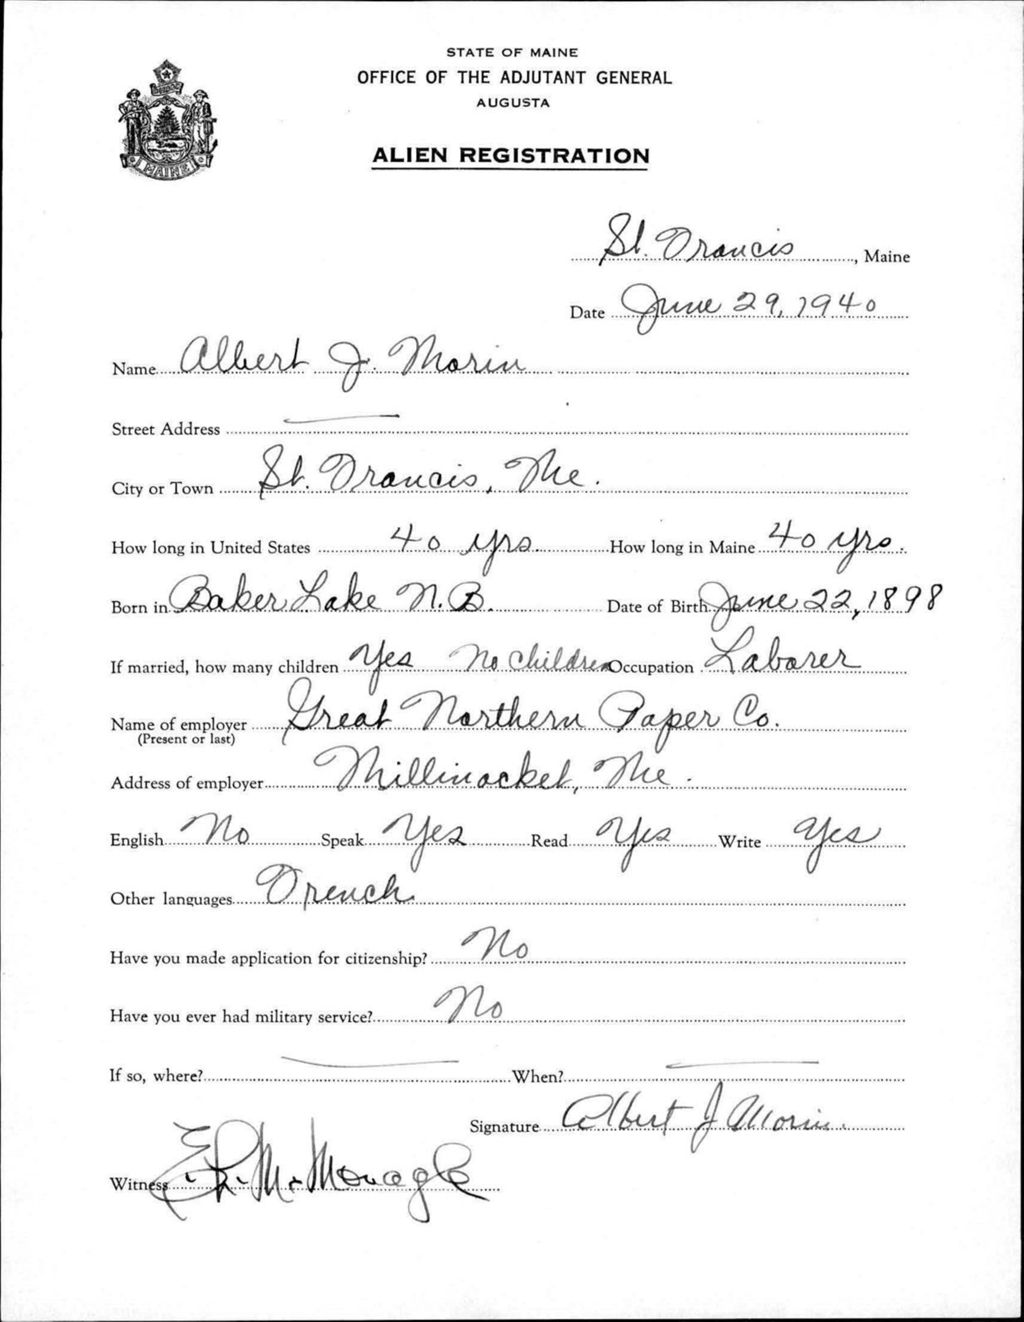 STATE OF MAINE
OFFICE OF THE ADJUTANT GENERAL
AUGUSTA
ALIEN REGISTRATION
MAINE
St. Francis, Maine
Date June 29, 1940
Name Albert J. Morin
Street Address
City or Town St. Francis, Me.
How long in United States 40 yrs How long in Maine 40 yrs.
Born in Baker Lake N.B. Date of Birth June 22, 1898
If married, how many children Yes No children Occupation Laborer
Name of employer Great Northern Paper Co.
(Present or last)
Address of employer Millinocket, Me.
English No Speak Yes Read Yes Write Yes
Other languages French
Have you made application for citizenship? No
Have you ever had military service? No
If so, where? When?
Signature Albert J Morin
Witness McMonagle